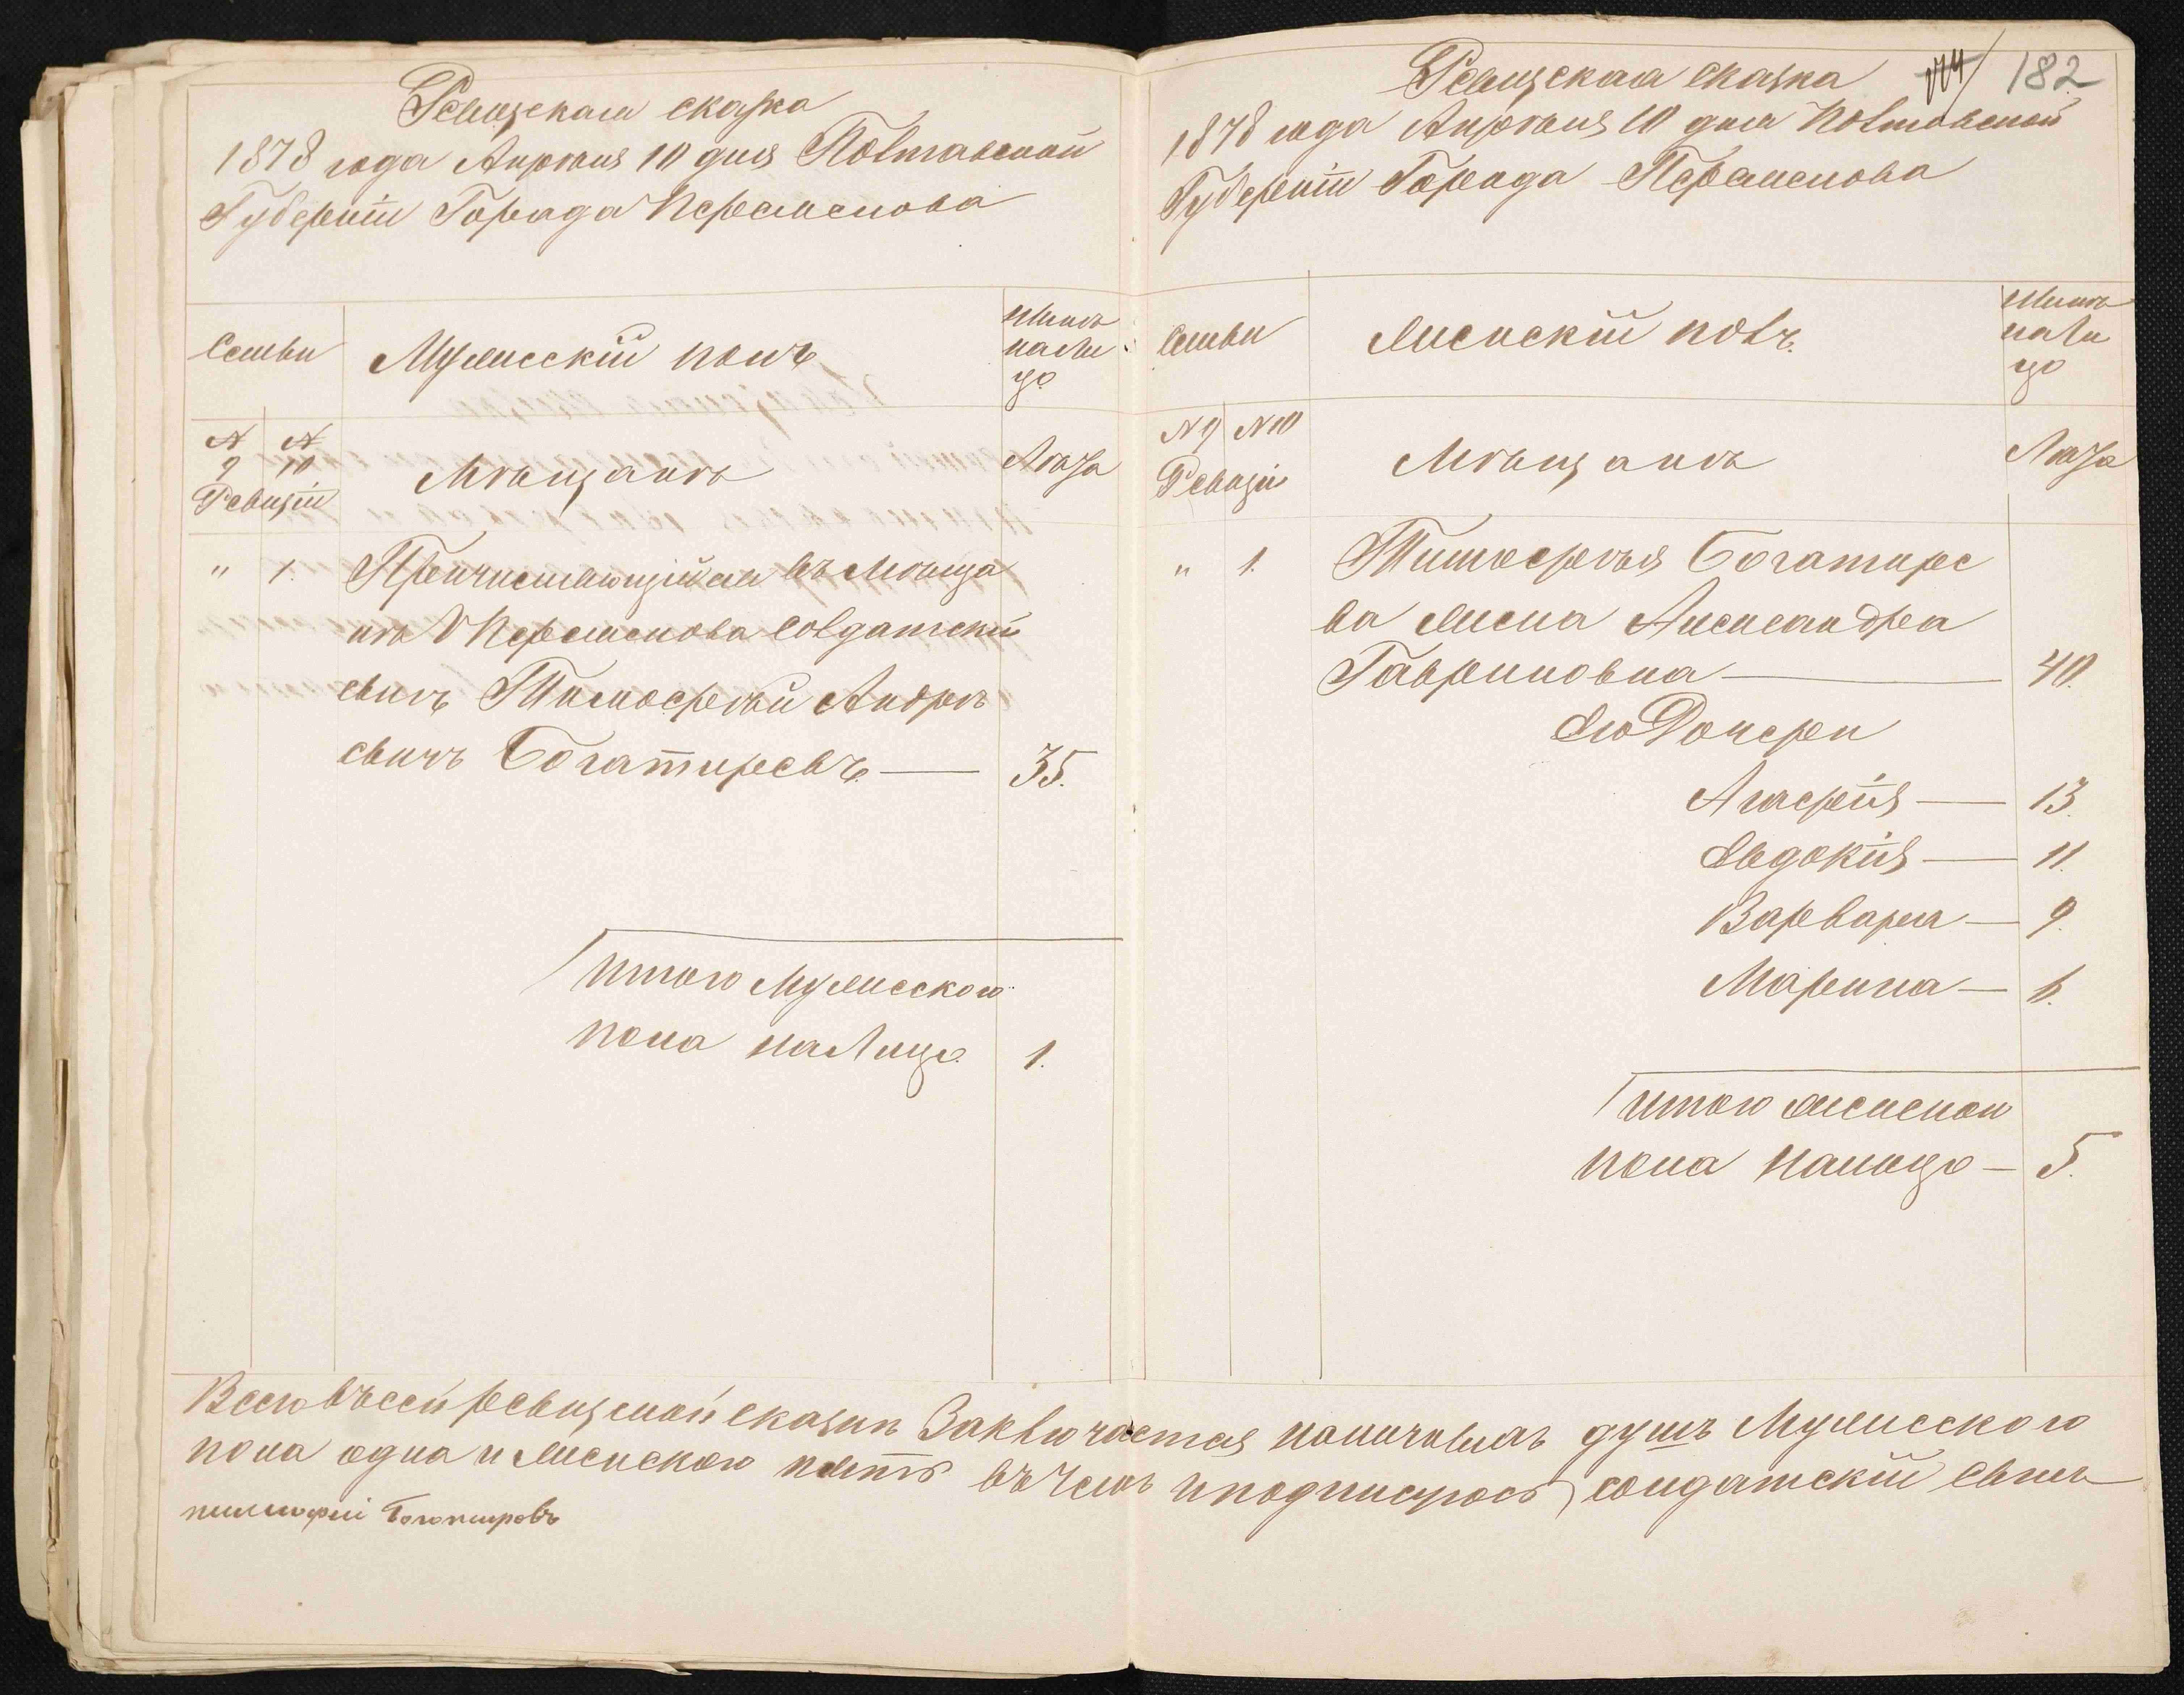 Ревизская сказка
1878 года Апрѣля 10 дня Полтавской
Губерніи Города Переяслова
Семьи
Мужесскій полъ
Нынѣ
на ли
цо
№ 9
№ 10
Ревизіи
Мѣщанъ
Лѣта
" 1. Причисляющійся въ Мѣща
не г Переяслова Солдатскій
сынъ Тимофѣй Андрѣ
евичъ Богатиревъ — 35.
Итого Мужесского
пола на лицо 1.
174 182
Ревизская сказка
1878 года Апрѣля 10 дня Полтавской
Губерніи Города Переяслова
Семьи
Женскій полъ.
Нынѣ
на ли
цо
№ 9 № 10
Ревизіи
Мѣщанъ
Лѣта
" 1. Тимофѣя Богатире
ва жена Александра
Гавриловна — 40.
Его Дочери
Агафія — 13.
Евдокія — 11.
Варвара — 9.
Марина — 6.
Итого женскон
пола налицо — 5.
Всего въ сей ревизской сказки Заключается наличныхъ душъ Мужесского
пола одна и женского пять въ чемъ и подписуюсь, солдатскій сынъ
тимофей Богатировъ